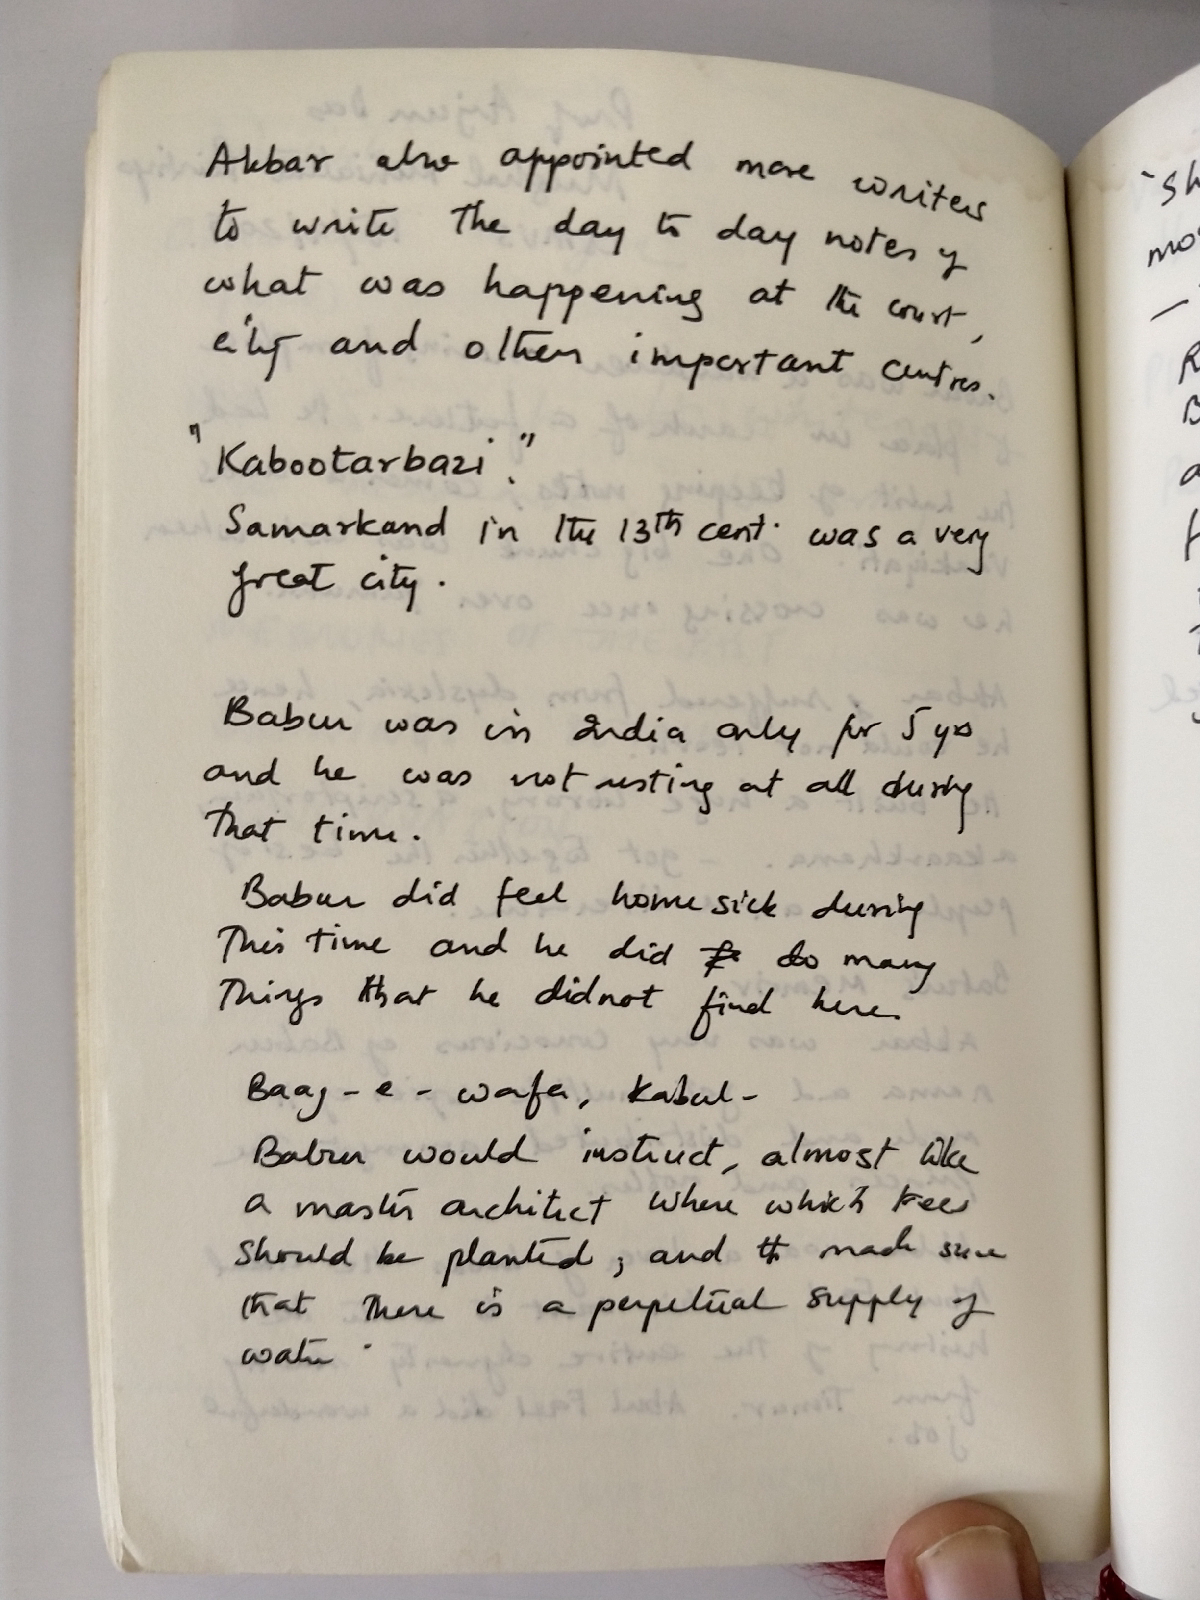 Akbar also appointed more writers
to write the day to day notes of
what was happening at the court,
city and other important centres.
"Kabootarbazi."
Samarkand in the 13th cent. was a very
great city.
Babur was in India only for 5 yrs
and he was not resting at all during
that time.
Babur did feel home sick during
This time and he did do many
Things that he didnot find here.
Baag-e-wafa, Kabul-
Babur would instruct, almost like
a master architect where which trees
should be planted, and made sure
that there is a perpetual supply of
water.